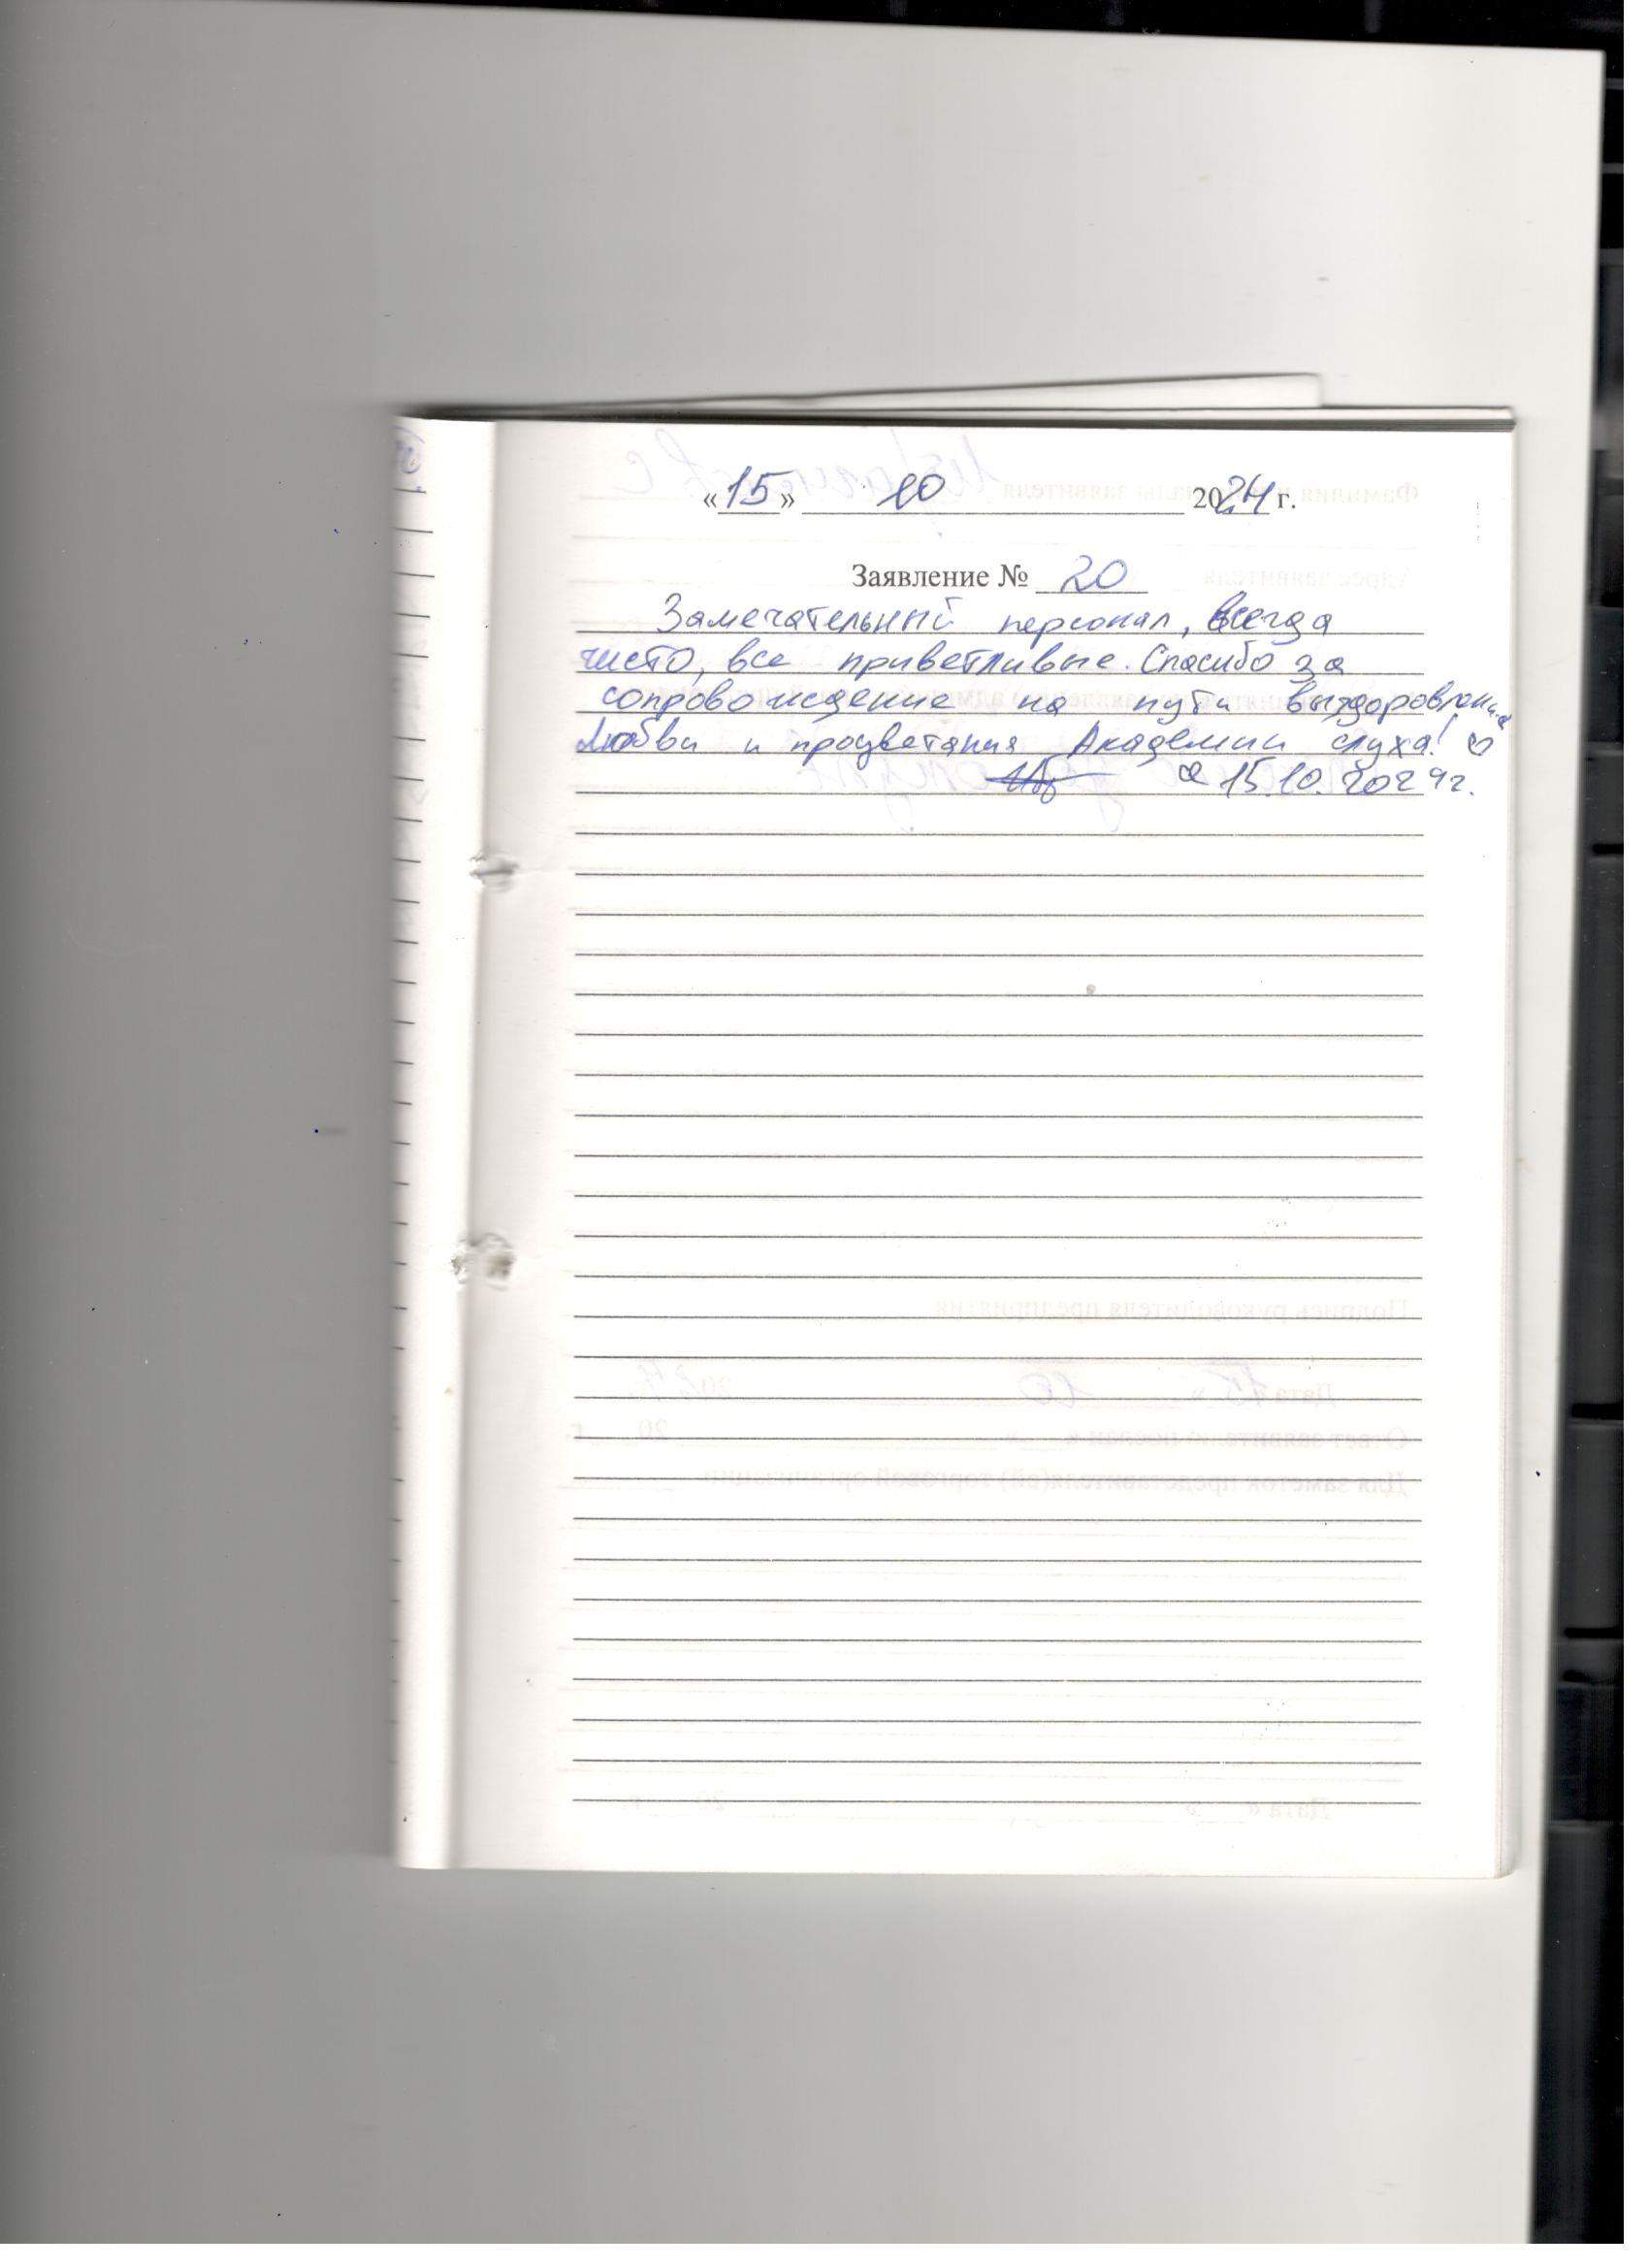 «15» 10 2024 г.
Заявление № 20
Замечательный персонал, всегда
чисто, все приветливые. Спасибо за
сопровождение на пути выздоровления
Любви и процветания Академии слуха! ♡
15.10.2024г.